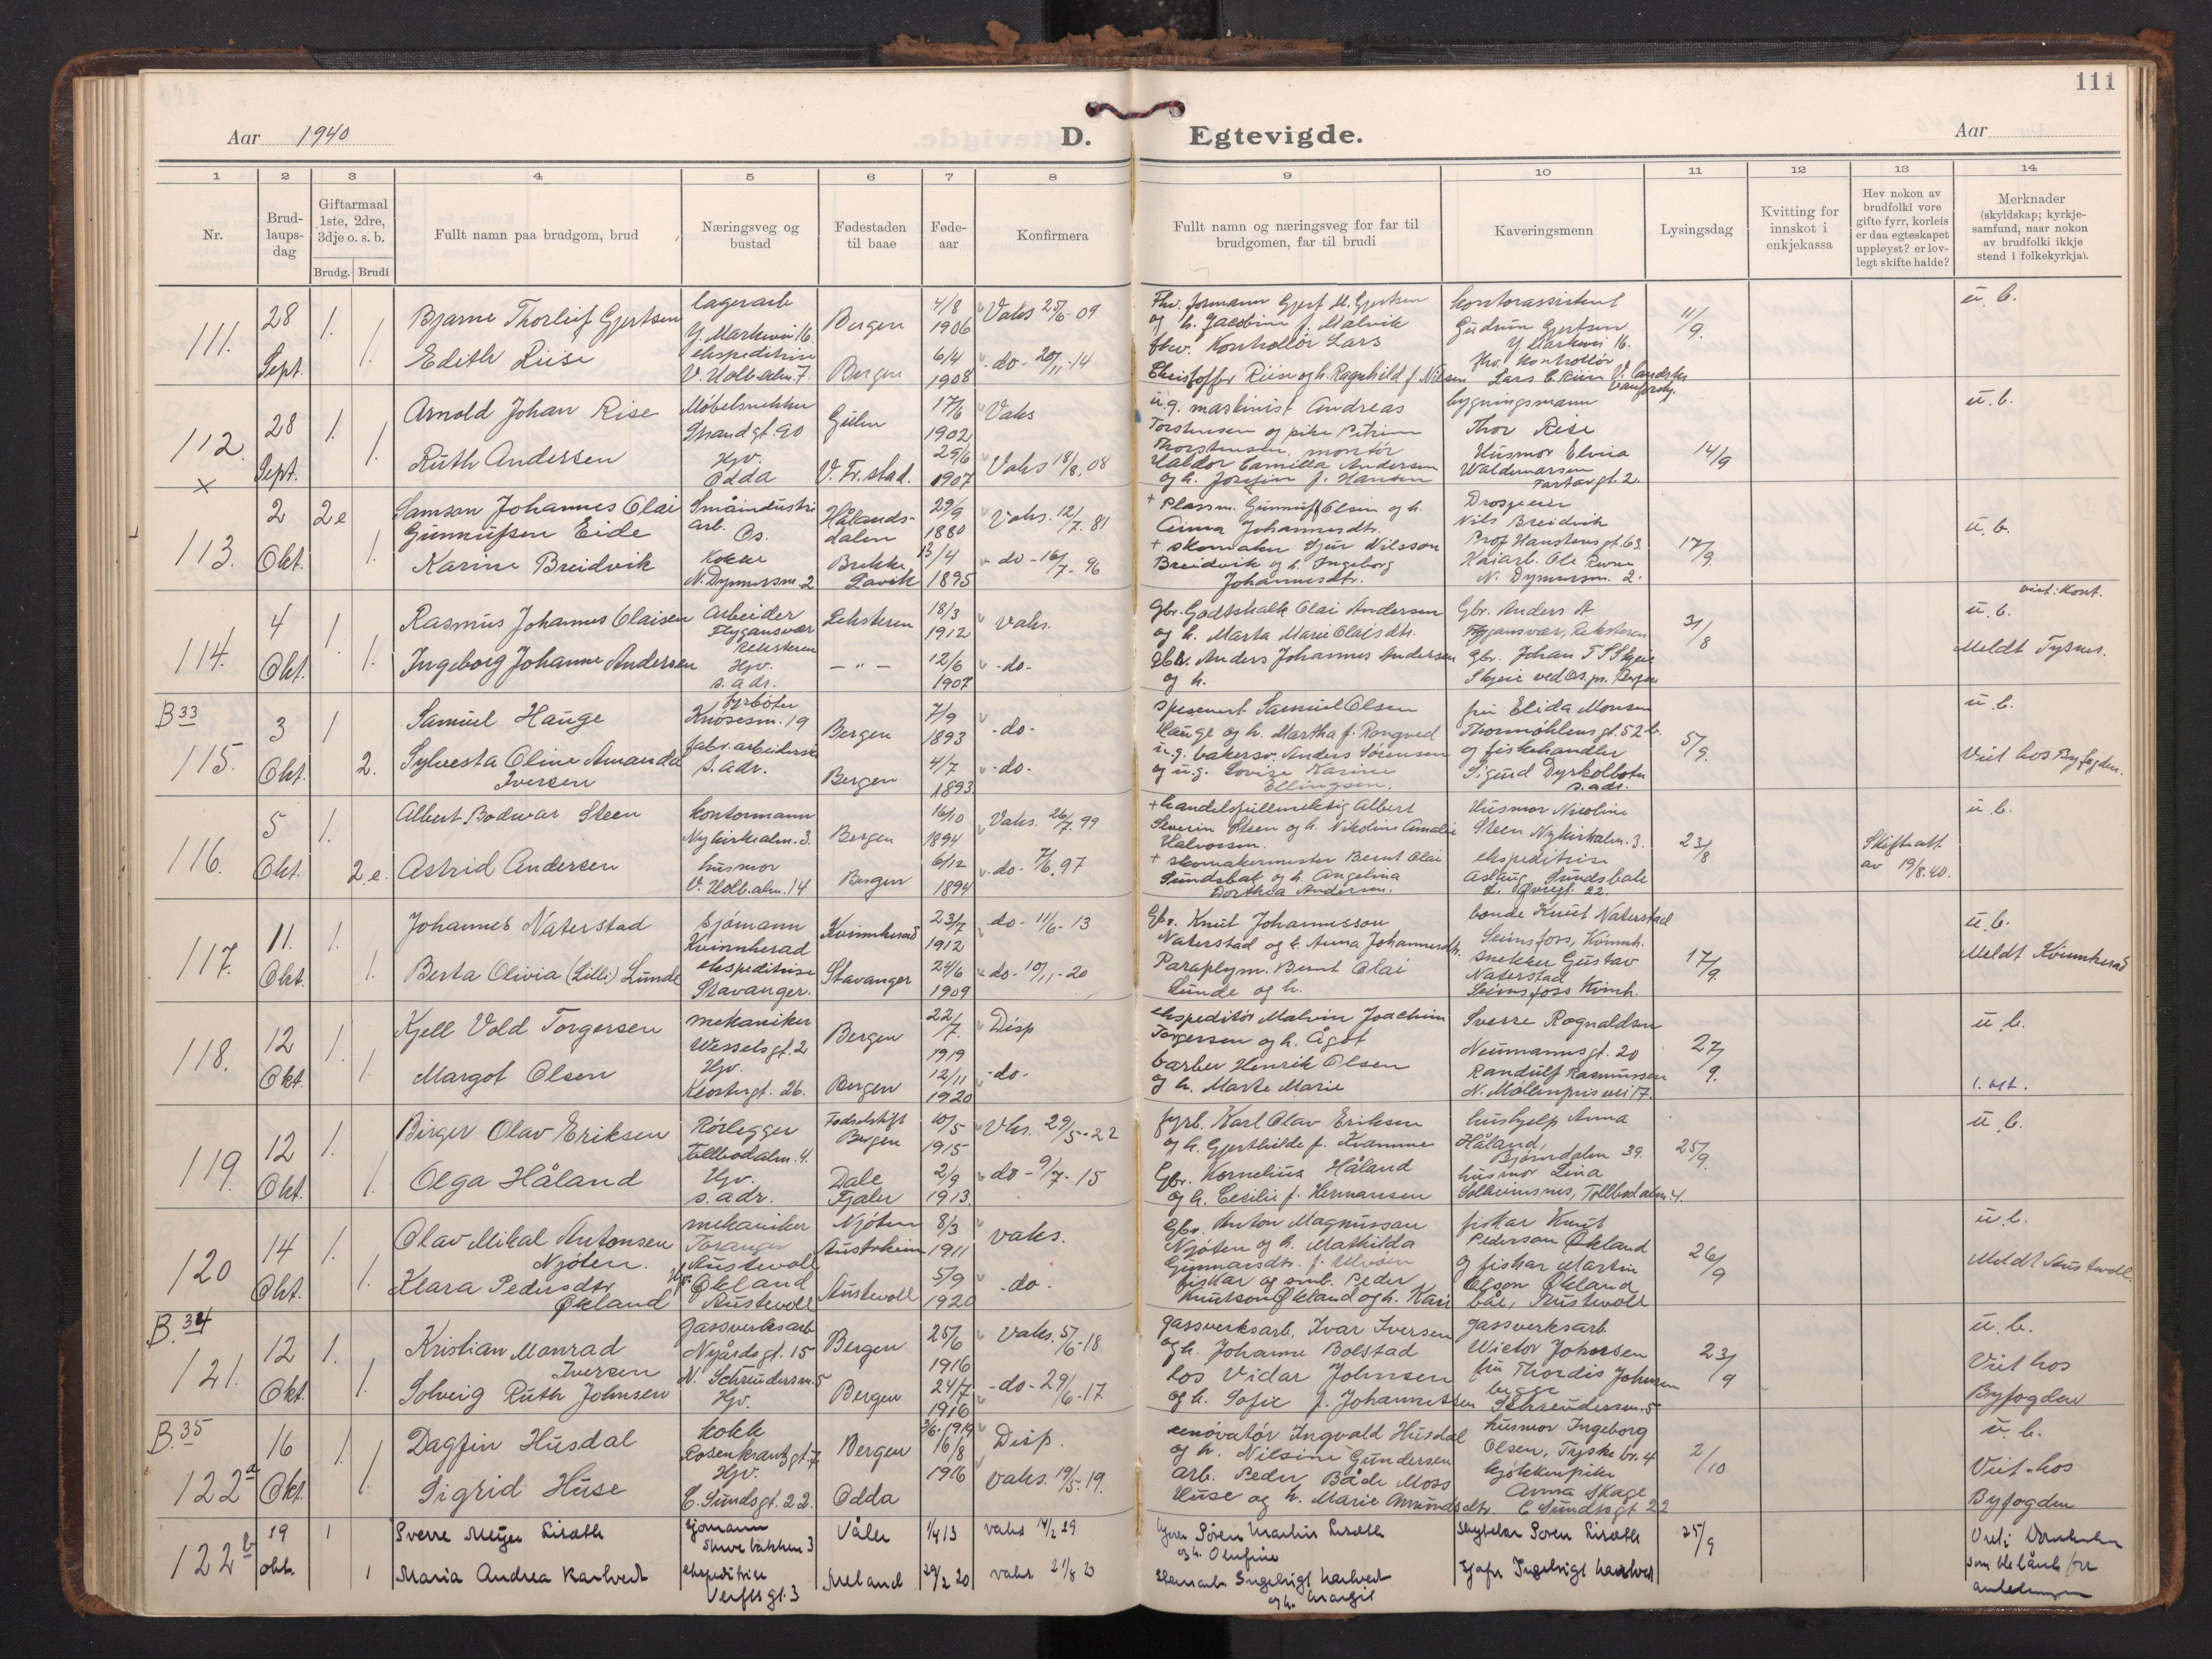 111
Aar 1940
D. Egtevigde.
Aar
1 2 3 4 5 6 7 8 9 10 11 12 13 14
Nr.
Brud-
laups-
dag
Giftarmaal
1ste, 2dre,
3dje o. s. b.
Brudg. Brudi
Fullt namn paa brudgom, brud
Næringsveg og
bustad
Fødestaden
til baae
Føde-
aar
Konfirmera
Fullt namn og næringsveg for far til
brudgomen, far til brudi
Kaveringsmenn
Lysingsdag
Kvitting for
innskot i
enkjekassa
Hev nokon av
brudfolki vore
gifte fyrr, korleis
er daa egteskapet
uppløyst? er lov-
legt skifte halde?
Merknader
(skyldskap; kyrkje-
samfund, naar nokon
av brudfolki ikkje
stend i folkekyrkja).
111. 28 Sept. 1. 1.
Bjarne Thorleif Gjertsen lagerarb Bergen 4/8 1906 Vaks 25/6 09
Edith Riise ekspeditrise Bergen 6/4 1908 -do- 20/11-14
Fhv. formann Gjert M. Gjertsen
og h. Jacobine f. Malvik
fhv. Kontrollör Lars
Christoffer Riise og h. Ragnhild f. Nilsen
kontorassistent
Gudrun Gjertsen
Y. Markevei 16.
fhv. kontrollör
11/9. u. b.
112. x 28 Sept. 1. 1.
Arnold Johan Rise Møbelsnekker Strandgt. 90 Gulen 17/6 1902 Vaks
Ruth Andersen Hjv. Odda V. Fr. stad. 25/6 1907 Vaks 18/8. 08
u.g. maskinist Andreas
Torstensen og pike Petrine
Thorstensen. montör
Haldor Camilla Andersen
og h. Josefin f. Hansen
bygningsmann
Thor Rise
Husmor Elvira
Waldemarsen
14/9 u. b.
113. 2 Okt. 2e 1.
Samson Johannes Olai
Gunnufsen Eide Småindustri arb. Os. Hålands-
dalen 29/9 1880 Vaks. 12/7. 81
Karine Breidvik Kokke N. Dyversm. 2 Brekke Lavik 13/4 1895 -do- 16/7-96
+ Plassm. Gunnuff Olsen og h.
Anna Johannesdtr.
+ skomaker Sjur Nilsson
Breidvik og h. Ingeborg
Johannesdtr.
Drosjeeier
Nils Breidvik
Prof Hanstensgt. 63.
Kaiarb. Ole
17/9. u. b.
114. 4 Okt. 1. 1.
Rasmus Johannes Olaisen Arbeider Flygansvær Reksteren 18/3 1912 vaks.
Ingeborg Johanne Andersen Hjv. s. adr. — " — 12/6 1907 -do-
Gbr. Godtskalk Olai Andersen
og h. Marta Marie Olaisdtr.
Gbr. Anders Johannes Andersen
og h.
Gbr. Anders A
Flygansvær, Reksteren
Gbr. Johan T S Skjeie
Skjeie ved Os. pr. Bergen
31/8 u. b.
Meldt Tysnes.
B 33
115. 3 Okt. 1 2.
Samuel Hauge fyrbøter Knøsesm. 19 Bergen 7/9 1893 -do-
Sylvesta Oline Amanda
Iversen fabr. arbeiderske s. adr. Bergen 4/7 1893 -do-
Samuel Olsen
Hauge og h. Martha f. Rongved
u.g. bakersv. Anders Sørensen
og u.g. Lovise Karine
Ellingsen.
fru Elida Monsen
Thormøhlens gt. 52 b.
og fiskehandler
Sigurd Dyrkolbotn
s. adr.
5/9. u. b.
Viet hos Byfogden.
116. 5 Okt. 1. 2.e.
Albert Bodwar Steen kontormann Nykirkealm. 3. Bergen 16/10 1894 Vaks. 26/7. 99
Astrid Andersen husmor V. Holb.alm. 14 Bergen 6/12 1894 -do- 7/6. 97
+ handelsfullmektig Albert
Severin Steen og h. Nikoline Amalie
Halvorsen.
+ skomakermester Bernt Olai
Sundsbak og h. Angelina
Dorthea Andersen.
Husmor Nicoline
Steen Nykirkalm. 3.
ekspeditrise
Aslaug Sundsbak
23/8 Skifteatt
av 19/8.40. u. b.
117. 11. Okt. 1. 1.
Johannes Naterstad Sjómann Kvinnherad Kvinnherad 23/7 1912 -do- 11/6-13
Berta Olivia (Lilli) Lunde ekspeditrise Stavanger. Stavanger 24/6 1909 -do- 10/11-20
Gbr. Knut Johannesson
Naterstad og h. Anna Johannesdtr.
Paraplym. Bernt Olai
Lunde og h.
bonde Knut Naterstad
Seimsfoss, Kvinnh.
snekker Gustav
Naterstad
Seimsfoss Kvinh.
17/9. u. b.
Meldt Kvinnherad
118. 12 Okt. 1. 1.
Kjell Vold Torgersen mekaniker Wesselsgt. 2 Bergen 22/7. 1919 Disp
Margot Olsen Hjv. Klostergt. 26. Bergen 12/11 1920 -do-
ekspeditör Malvin Joachim
Torgersen og h. Ågot
barber Henrik Olsen
og h. Marte Marie
Sverre Rognaldsen
Neumannsgt. 20
Randulf Rasmussen
N. Møllenprisvei 17.
27/9. u. b.
119. 12 Okt. 1. 1.
Birger Olav Eriksen Rörlegger Tollbodalm. 4. Fødselstift Bergen 10/5 1915 Vks. 29/5-22
Olga Håland Hjv. s. adr. Dale Fjaler 2/9 1913. do- 9/7-15
fyrb. Karl Olav Eriksen
og h. Gjerthilde f. Kvamme
Gbr. Kornelius Håland
og h. Cecilie f. Hermansen
hushjelp Anna
Håland,
Bjørndalen 39.
husmor Lina
Solheimsnes, Tollbodalm. 4.
25/9. u. b.
120 14 Okt. 1. 1.
Olav Mikal Antonsen
Njöten. mekaniker Austevoll Njöten Austrheim 8/3 1911 vaks.
Klara Pedersdtr.
Økland Hjv. Økland Austevoll Austevoll 5/9 1920 -do-
Gbr. Anton Magnusson
Njöten og h. Mathilda
fiskar og smb. Peder
Knutson Økland og h. Kari
fiskar Knut
Pederson Økland
og fiskar Martin
Olson Økland
26/9 u. b.
Meldt Austevoll.
B. 34
121. 12 Okt. 1. 1.
Kristian Monrad
Iversen gassverksarb Nygårdsgt. 15 Bergen 25/6 1916 Vaks. 5/6-18
Solveig Ruth Johnsen N. Schreudersm. 5 Hjv. Bergen 24/7 1916 -do- 29/6-17.
gassverksarb. Ivar Iversen
og h. Johanne Bolstad
los Vidar Johnsen
og h. Sofie f. Johannessen
gassverksarb
Wictor Johnsen
fru Thordis Johnsen
begge
Schreudersm. 5
23/9 u. b.
Viet hos
Byfogden
B. 35
122 a 16 Okt. 1. 1.
Dagfin Husdal kokk Rosenkrantzgt. 7 Bergen 3/6. 1919 Disp.
Sigrid Huse Hjv. C. Sundsgt. 22. Odda 16/8 1916 vaks. 19/5-19.
renovatör Ingvald Husdal
og h. Nilsine Gundersen
arb. Peder Både Moss
Huse og h. Marie Amundsdtr.
husmor Ingeborg
Olsen, Tyskebr. 4
kjøkkenpike
Anna Skage
C Sundtsgt 22
2/10 u. b.
Viet hos
Byfogden
122 b 19 okt. 1 1
Sverre Meyer Liseth sjømann Våler 1/4 13 vaks 14/2 29
Maria Andrea Karlvedt ekspeditrise Verftsgt. 3 Meland 29/2 20 vaks 21/8 20
Søren Martin Liseth
og h. Olufine
Ingebrigt Karlvedt
og h. Margit
Soren Liseth
Ingebrigt Karlvedt
25/9